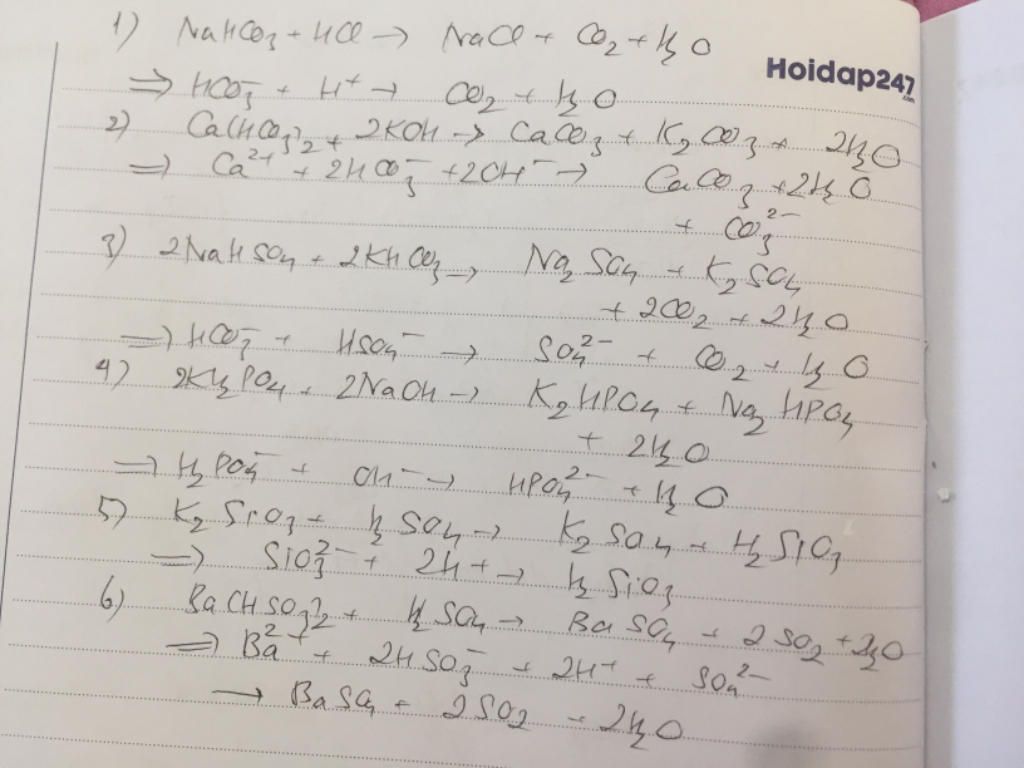 1) NaHCO₃ + HCl → NaCl + CO₂ + H₂O
Hoidap247
.com
⇒ HCO₃⁻ + H⁺ → CO₂ + H₂O
2) Ca(HCO₃)₂ + 2KOH → CaCO₃ + K₂CO₃ + 2H₂O
⇒ Ca²⁺ + 2HCO₃⁻ + 2OH⁻ → CaCO₃ + 2H₂O
+ CO₃²⁻
3) 2NaHSO₄ + 2KHCO₃ → Na₂SO₄ + K₂SO₄
+ 2CO₂ + 2H₂O
⇒ HCO₃⁻ + HSO₄⁻ → SO₄²⁻ + CO₂ + H₂O
4) 2KH₂PO₄ + 2NaOH → K₂HPO₄ + Na₂HPO₄
+ 2H₂O
⇒ H₂PO₄⁻ + OH⁻ → HPO₄²⁻ + H₂O
5) K₂SiO₃ + H₂SO₄ → K₂SO₄ + H₂SiO₃
⇒ SiO₃²⁻ + 2H⁺ → H₂SiO₃
6) Ba(HSO₃)₂ + H₂SO₄ → BaSO₄ + 2SO₂ + 2H₂O
⇒ Ba²⁺ + 2HSO₃⁻ + 2H⁺ + SO₄²⁻
→ BaSO₄ + 2SO₂ + 2H₂O